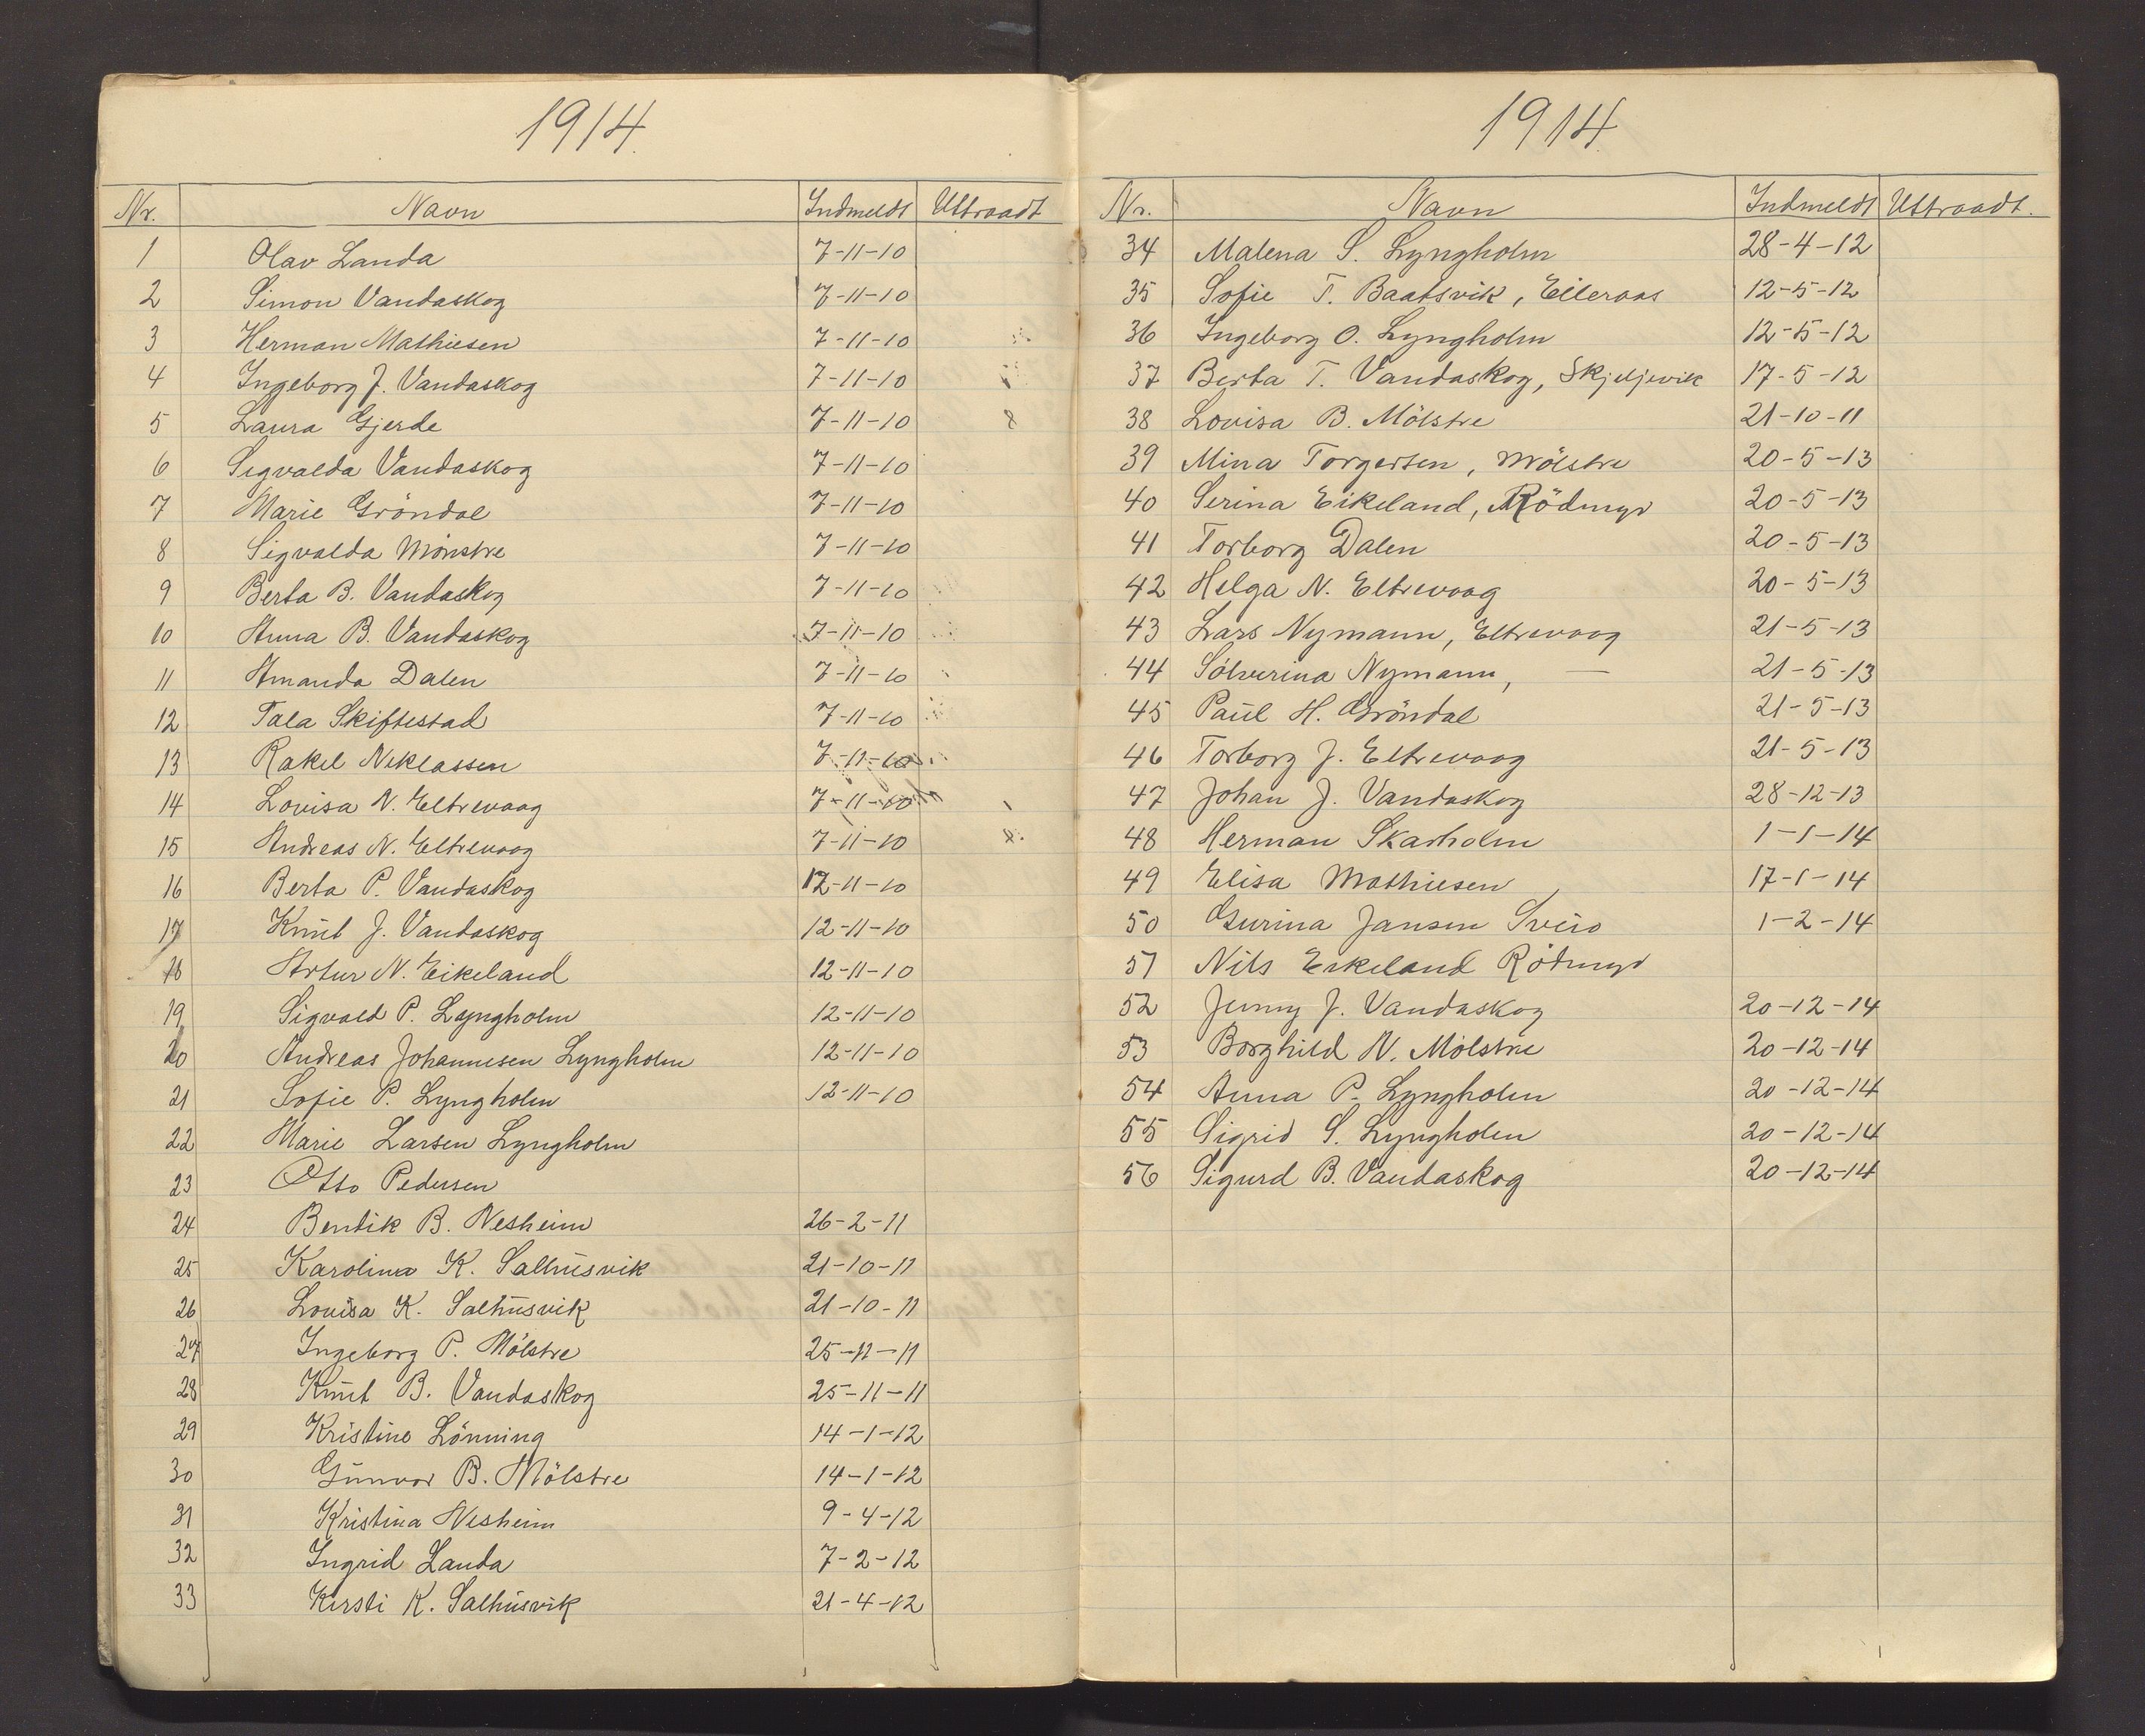 1914.
Nr. Navn Indmeldt Uttraadt
1 Olav Landa 7-11-10
2 Simon Vandaskog 7-11-10
3 Herman Mathiesen 7-11-10
4 Ingeborg J. Vandaskog 7-11-10
5 Laura Gjerde 7-11-10
6 Sigvalda Vandaskog 7-11-10
7 Marie Gröndal 7-11-10
8 Sigvalda Mönstre 7-11-10
9 Berta B. Vandaskog 7-11-10
10 Anna B. Vandaskog 7-11-10
11 Amanda Dalen 7-11-10
12 Tala Skiftestad 7-11-10
13 Rakel Neklassen 7-11-10
14 Lovisa N. Eltrevaag 7-11-10
15 Andreas N. Eltrevaag 7-11-10
16 Berta P. Vandaskog 12-11-10
17 Knut J. Vandaskog 12-11-10
18 Artur N. Eikeland 12-11-10
19 Sigvald P. Lyngholm 12-11-10
20 Andreas Johannesen Lyngholm 12-11-10
21 Sofie P. Lyngholm 12-11-10
22 Marie Larsen Lyngholm
23 Otto Pedersen
24 Bendik B. Nesheim 26-2-11
25 Karolina K. Salhusvik 21-10-11
26 Lovisa K. Salhusvik 21-10-11
27 Ingeborg P. Mölstre 25-11-11
28 Knut B. Vandaskog 25-11-11
29 Kristine Lönning 14-1-12
30 Gunvor B. Mölstre 14-1-12
31 Kristina Nesheim 9-4-12
32 Ingrid Landa 7-2-12
33 Kirsti K. Salhusvik 21-4-12
1914.
Nr. Navn Indmeldt Uttraadt.
34 Malena S. Lyngholm 28-4-12
35 Sofie T. Baatsvik, Eileraas 12-5-12
36 Ingeborg O. Lyngholm 12-5-12
37 Berta T. Vandaskog, Skjeljevik 17-5-12
38 Lovisa B. Mölstre 21-10-11
39 Mina Torgersen, Mölstre 20-5-13
40 Serina Eikeland, Rödmyr 20-5-13
41 Torborg Dalen 20-5-13
42 Helga N. Eltrevaag 20-5-13
43 Lars Nymann, Eltrevaag 21-5-13
44 Sölverina Nymann, — 21-5-13
45 Paul H. Gröndal 21-5-13
46 Torborg J. Eltrevaag 21-5-13
47 Johan J. Vandaskog 28-12-13
48 Herman Skarholm 1-1-14
49 Elisa Mathiesen, 17-1-14
50 Gurina Jansen Sveio 1-2-14
51 Nils Eikeland Rödmyr
52 Jenny J. Vandaskog 20-12-14
53 Borghild N. Mölstre 20-12-14
54 Anna P. Lyngholm 20-12-14
55 Sigrid S. Lyngholm 20-12-14
56 Sigurd B. Vandaskog 20-12-14